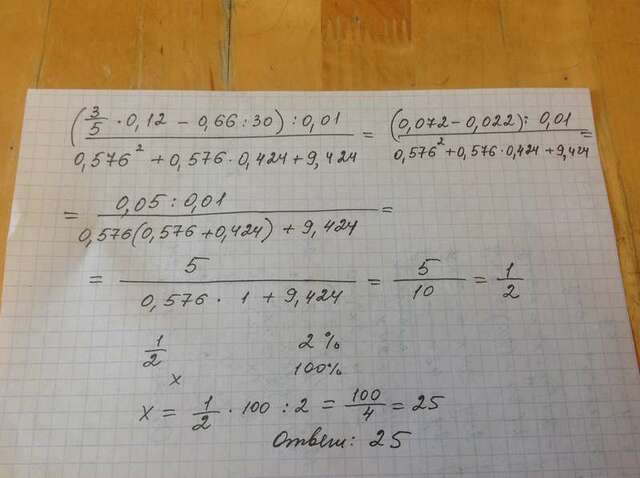 (3/5 · 0,12 − 0,66 : 30) : 0,01 / 0,576² + 0,576 · 0,424 + 9,424 = (0,072 − 0,022) : 0,01 / 0,576² + 0,576 · 0,424 + 9,424 =
= 0,05 : 0,01 / 0,576(0,576 + 0,424) + 9,424 =
= 5 / 0,576 · 1 + 9,424 = 5/10 = 1/2
1/2 2%
x 100%
x = 1/2 · 100 : 2 = 100/4 = 25
Ответ: 25